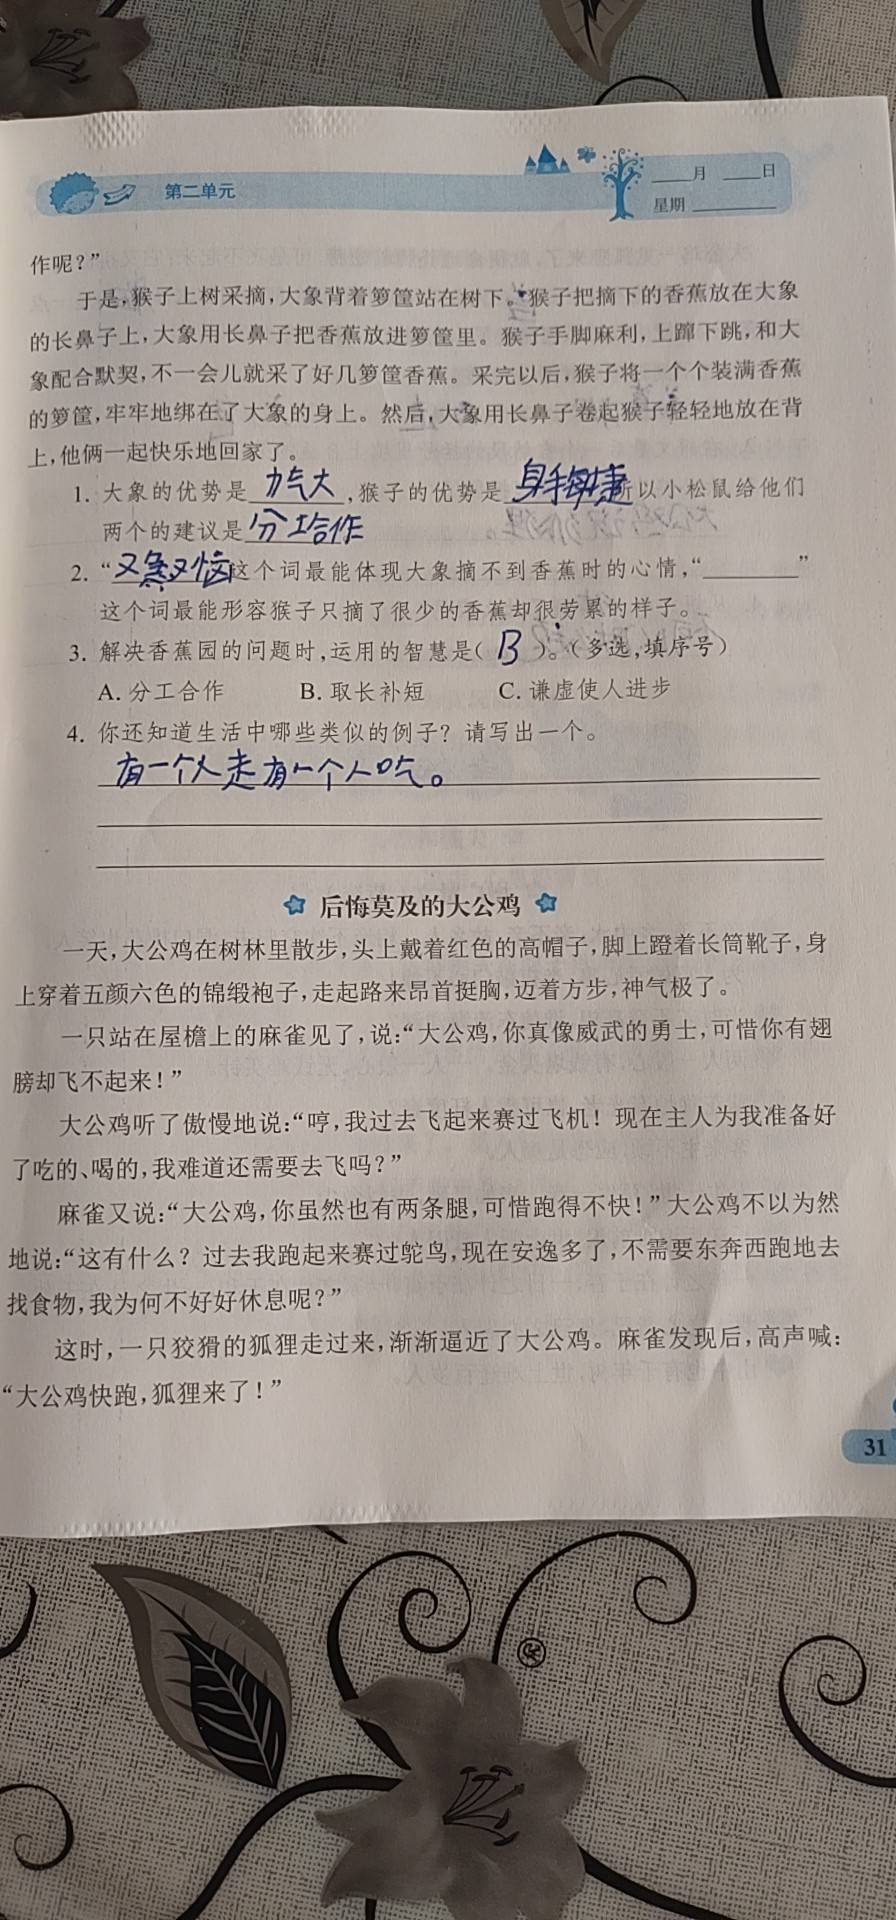 第二单元
____月 ____日
星期 ________
作呢？”
于是，猴子上树采摘，大象背着箩筐站在树下。猴子把摘下的香蕉放在大象
的长鼻子上，大象用长鼻子把香蕉放进箩筐里。猴子手脚麻利，上蹿下跳，和大
象配合默契，不一会儿就采了好几箩筐香蕉。采完以后，猴子将一个个装满香蕉
的箩筐，牢牢地绑在了大象的身上。然后，大象用长鼻子卷起猴子轻轻地放在背
上，他俩一起快乐地回家了。
1. 大象的优势是力气大，猴子的优势是身手敏捷所以小松鼠给他们
两个的建议是分工合作
2. “又急又恼这个词最能体现大象摘不到香蕉时的心情，“________”
这个词最能形容猴子只摘了很少的香蕉却很劳累的样子。
3. 解决香蕉园的问题时，运用的智慧是（ B ）。（多选，填序号）
A. 分工合作 B. 取长补短 C. 谦虚使人进步
4. 你还知道生活中哪些类似的例子？请写出一个。
有一个人走有一个人吃。
后悔莫及的大公鸡
一天，大公鸡在树林里散步，头上戴着红色的高帽子，脚上蹬着长筒靴子，身
上穿着五颜六色的锦缎袍子，走起路来昂首挺胸，迈着方步，神气极了。
一只站在屋檐上的麻雀见了，说：“大公鸡，你真像威武的勇士，可惜你有翅
膀却飞不起来！”
大公鸡听了傲慢地说：“哼，我过去飞起来赛过飞机！现在主人为我准备好
了吃的、喝的，我难道还需要去飞吗？”
麻雀又说：“大公鸡，你虽然也有两条腿，可惜跑得不快！”大公鸡不以为然
地说：“这有什么？过去我跑起来赛过鸵鸟，现在安逸多了，不需要东奔西跑地去
找食物，我为何不好好休息呢？”
这时，一只狡猾的狐狸走过来，渐渐逼近了大公鸡。麻雀发现后，高声喊：
“大公鸡快跑，狐狸来了！”
31